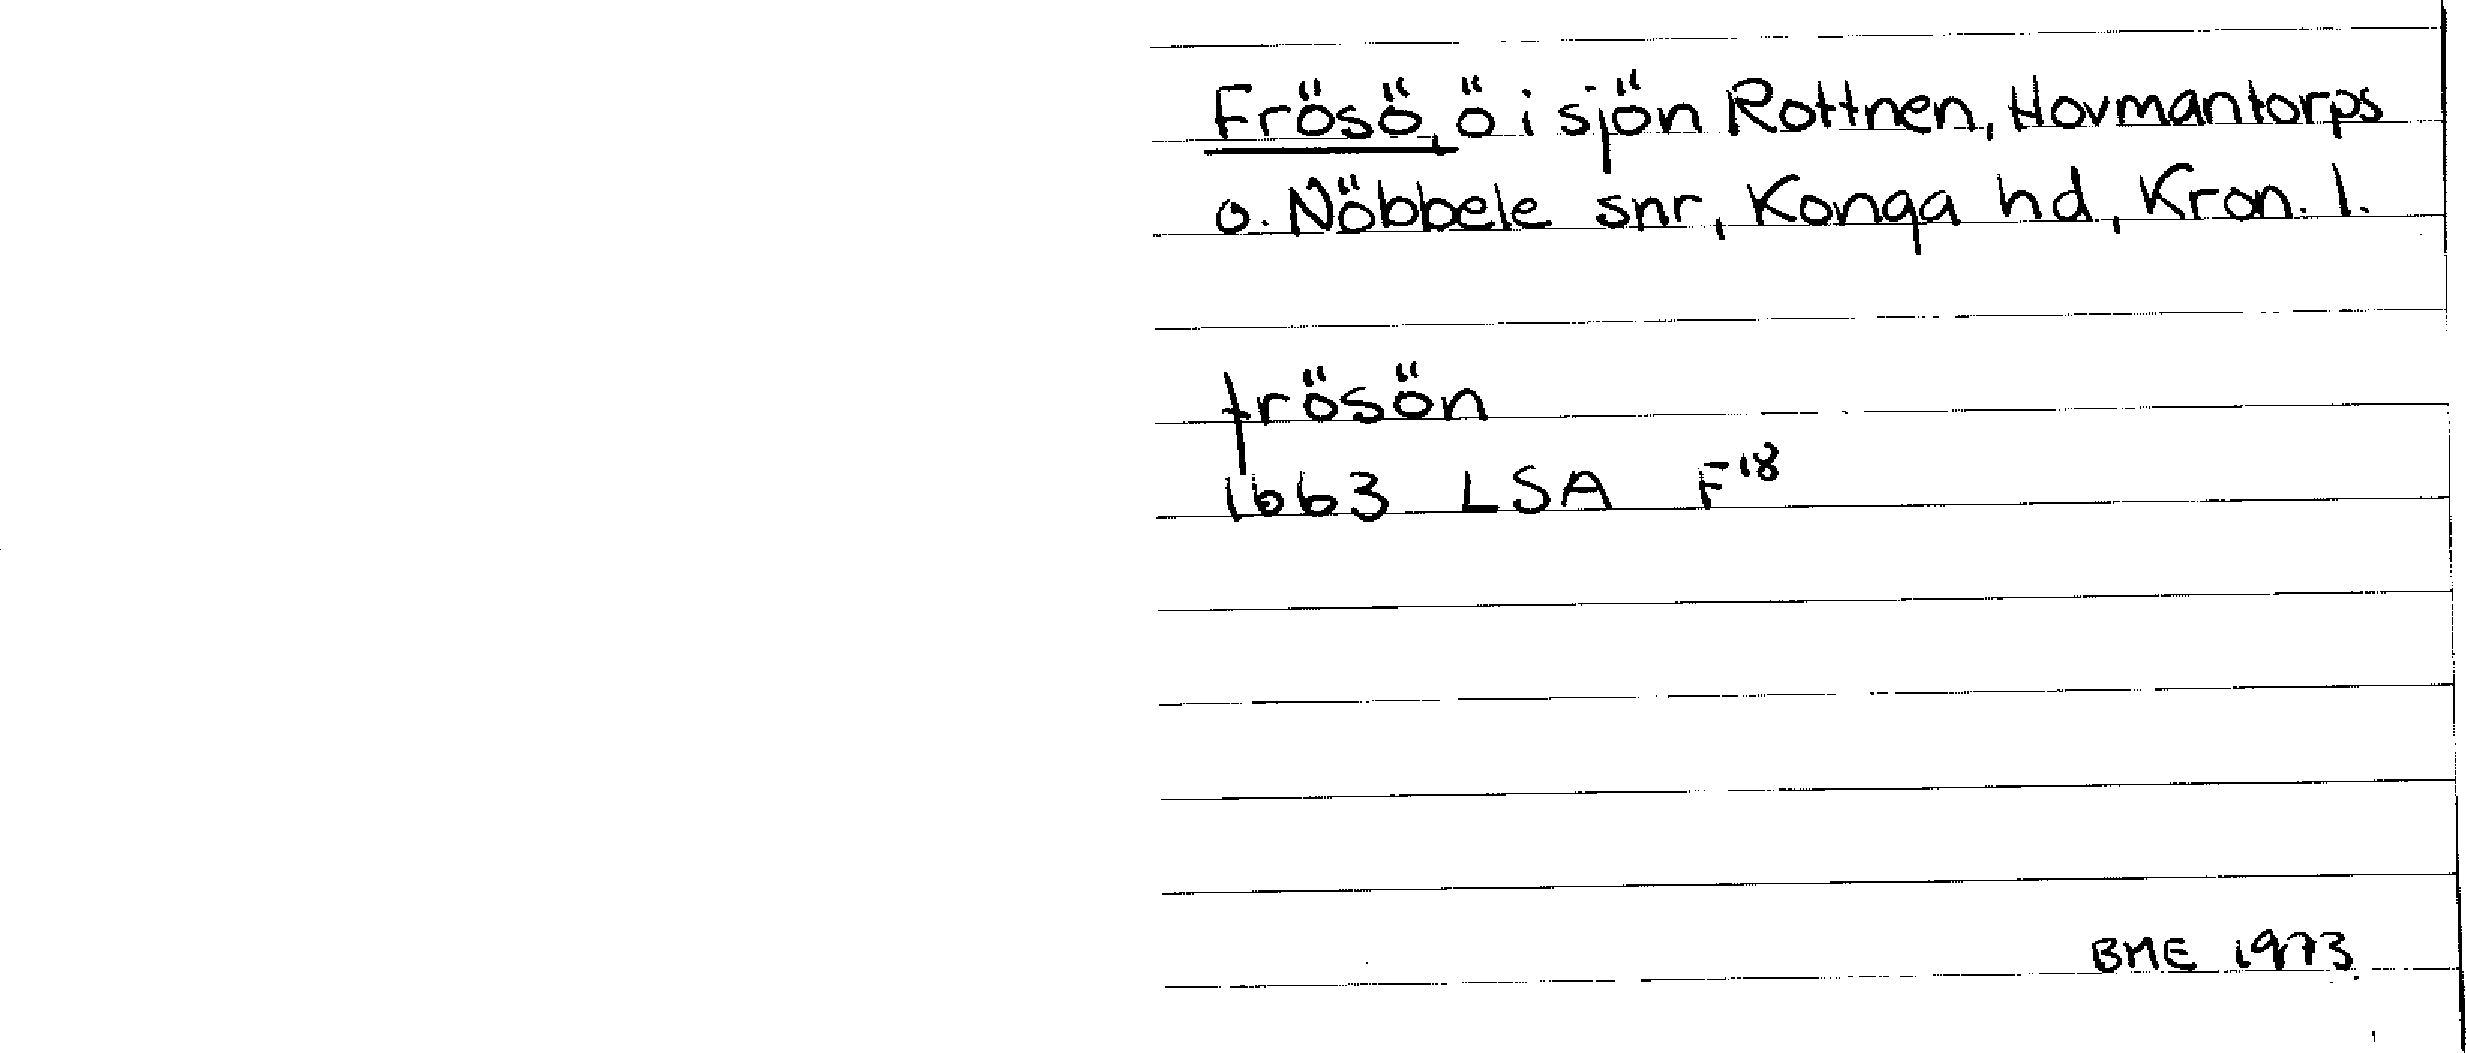 Frösö, ö i sjön Rottnen, Hovmantorps
o. Nöbbele snr, Konga hd, Kron. l.
frösön
1663 LSA F18
BME 1973